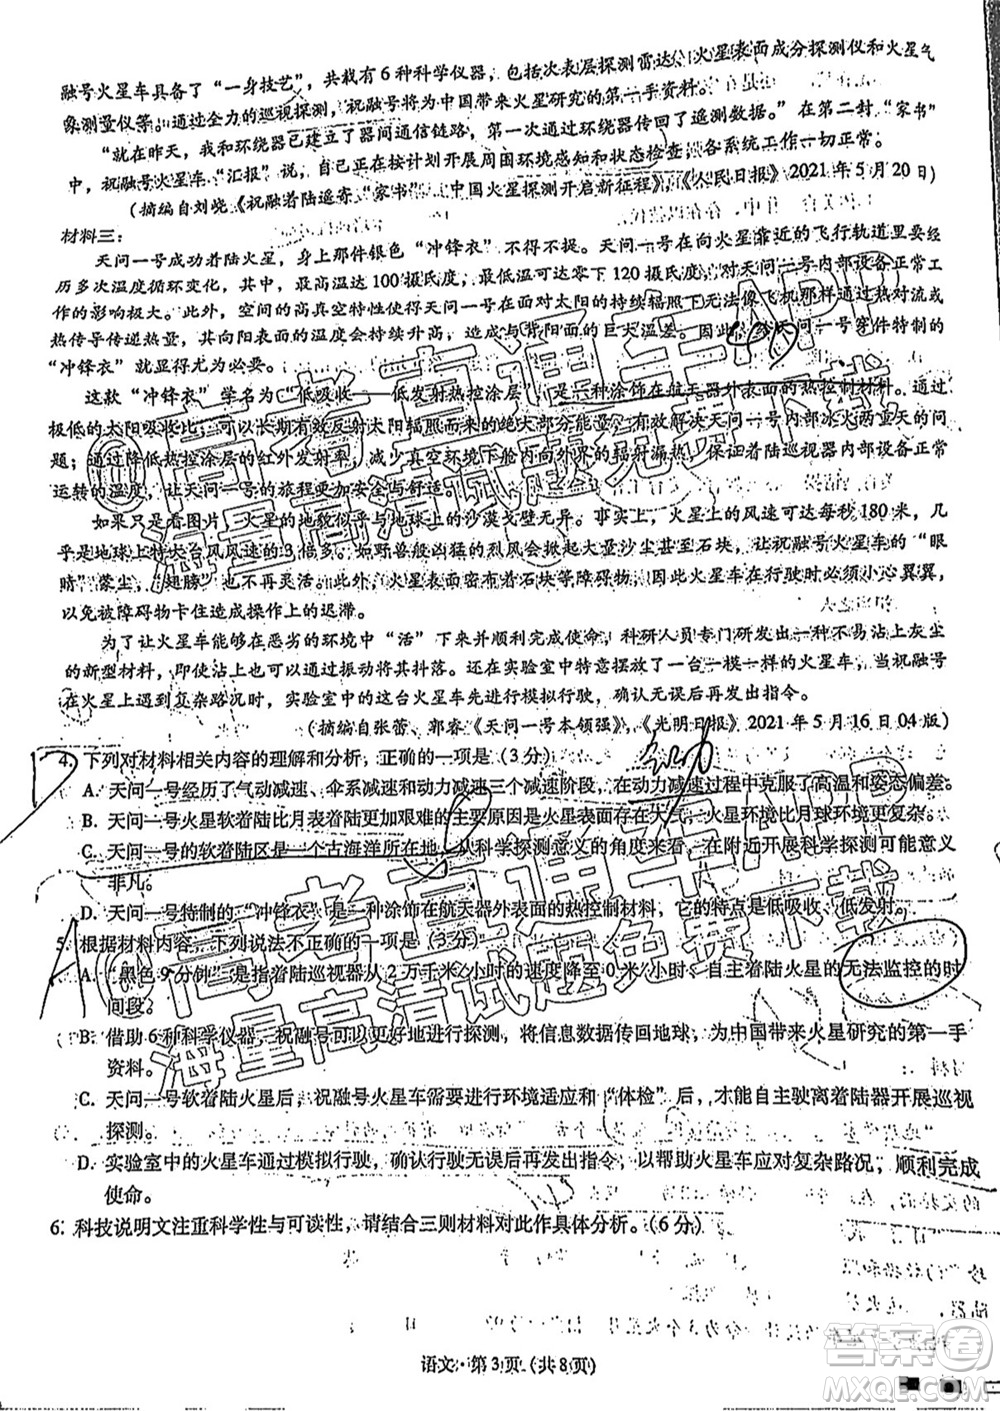 融号火星车具备了“一身技艺”，共载有6种科学仪器，包括次表层探测雷达、火星表面成分探测仪和火星气
象测量仪等。通过全力的巡视探测，祝融号将为中国带来火星研究的第一手资料。
“就在昨天，我和环绕器已建立了器间通信链路，第一次通过环绕器传回了遥测数据。”在第二封“家书”
中，祝融号火星车“汇报”说，自己正在按计划开展周围环境感知和状态检查，各系统工作一切正常。
（摘编自刘峣《祝融着陆遥寄“家书”，中国火星探测开启新征程》，《人民日报》2021年5月20日）
材料三：
天问一号成功着陆火星，身上那件银色“冲锋衣”不得不提。天问一号在向火星靠近的飞行轨道里要经
历多次温度循环变化，最高温达100摄氏度，最低温可达零下120摄氏度，对天问一号内部设备正常工
作的影响极大。此外，空间的高真空特性使得天问一号在面对太阳的持续辐照时无法像飞机那样通过热对流或
热传导传递热量，其向阳表面的温度会持续升高，造成与背阳面的巨大温差。因此，给天问一号穿件特制的
“冲锋衣”就显得尤为必要。
这款“冲锋衣”学名为“低吸收——低发射热控涂层”，是一种涂饰在航天器外表面的热控制材料。通过
极低的太阳吸收比，可以长期有效反射太阳辐照的绝大部分能量，有效解决天问一号内部冰火两重天的问
题；通过降低热控涂层的红外发射率，减少真空环境下舱内向外界的辐射漏热，保证着陆巡视器内部设备正常
运转的温度，让天问一号的旅程更安全与舒适。
如果只是看图片，火星的地貌似乎与地球上的沙漠戈壁无异。事实上，火星上的风速可达每秒180米，几
乎是地球上特大台风风速的3倍多。如野兽般凶猛的烈风会掀起大量沙尘甚至石块，让祝融号火星车的“眼
睛”蒙尘，“翅膀”不再灵活。此外，火星表面密布着石块等障碍物，因此火星车在行驶时必须小心翼翼，
以免被障碍物卡住造成操作上的迟滞。
为了让火星车能够在恶劣的环境中“活”下来并顺利完成使命，科研人员专门研发出一种不易沾上灰尘
的新型材料，即便沾上灰尘，也可以通过振动将其抖落。还在实验室中特意摆放了一台一模一样的火星车，当祝融号
在火星上遇到复杂路况时，实验室中的这台火星车先进行模拟行驶，确认无误后再发出指令。
（摘编自张蕾、郭睿《天问一号本领强》，《光明日报》2021年5月16日04版）
4. 下列对材料相关内容的理解和分析，正确的一项是（3分）
A. 天问一号经历了气动减速、伞系减速和动力减速三个减速阶段，在动力减速过程中克服了高温和姿态偏差。
B. 天问一号火星软着陆比月表着陆更加艰难的主要原因是火星表面存在大气，火星环境比月球环境更复杂。
C. 天问一号的软着陆区是一个古海洋所在地，从科学探测意义的角度来看，在附近开展科学探测可能意义
非凡。
D. 天问一号特制的“冲锋衣”是一种涂饰在航天器外表面的热控制材料，它的特点是低吸收、低发射。
5. 根据材料内容，下列说法不正确的一项是（3分）
A. “黑色9分钟”是指着陆巡视器从2万千米/小时的速度降至0米/小时、自主着陆火星的无法监控的时
间段。
B. 借助6种科学仪器，祝融号可以更好地进行探测，将信息数据传回地球，为中国带来火星研究的第一手
资料。
C. 天问一号软着陆火星后，祝融号火星车需要先进行环境适应和“体检”，才能自主驶离着陆器开展巡视
探测。
D. 实验室中的火星车通过模拟行驶，确认行驶无误后再发出指令，以帮助火星车应对复杂路况，顺利完成
使命。
6. 科技说明文注重科学性与可读性，请结合三则材料对此作具体分析。（6分）
语文·第3页（共8页）
@高考直通车APP
海量高清试题免费下载
@高考直通车APP
海量高清试题免费下载
D
A
答案卷
MXQE.COM